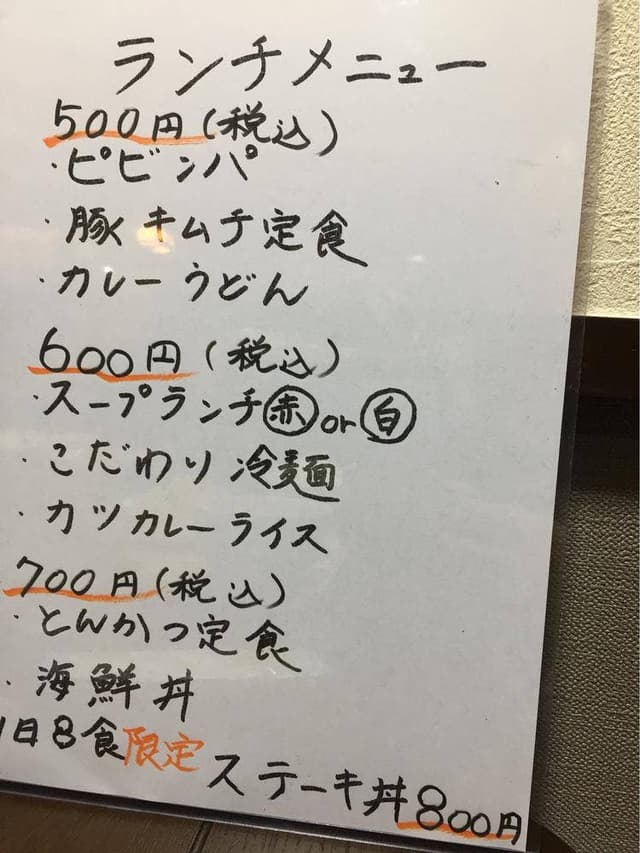 ランチメニュー
500円(税込)
・ピビンパ
・豚キムチ定食
・カレーうどん
600円(税込)
・スープランチ赤or白
・こだわり冷麺
・カツカレーライス
700円(税込)
・とんかつ定食
・海鮮丼
1日8食限定
ステーキ丼800円